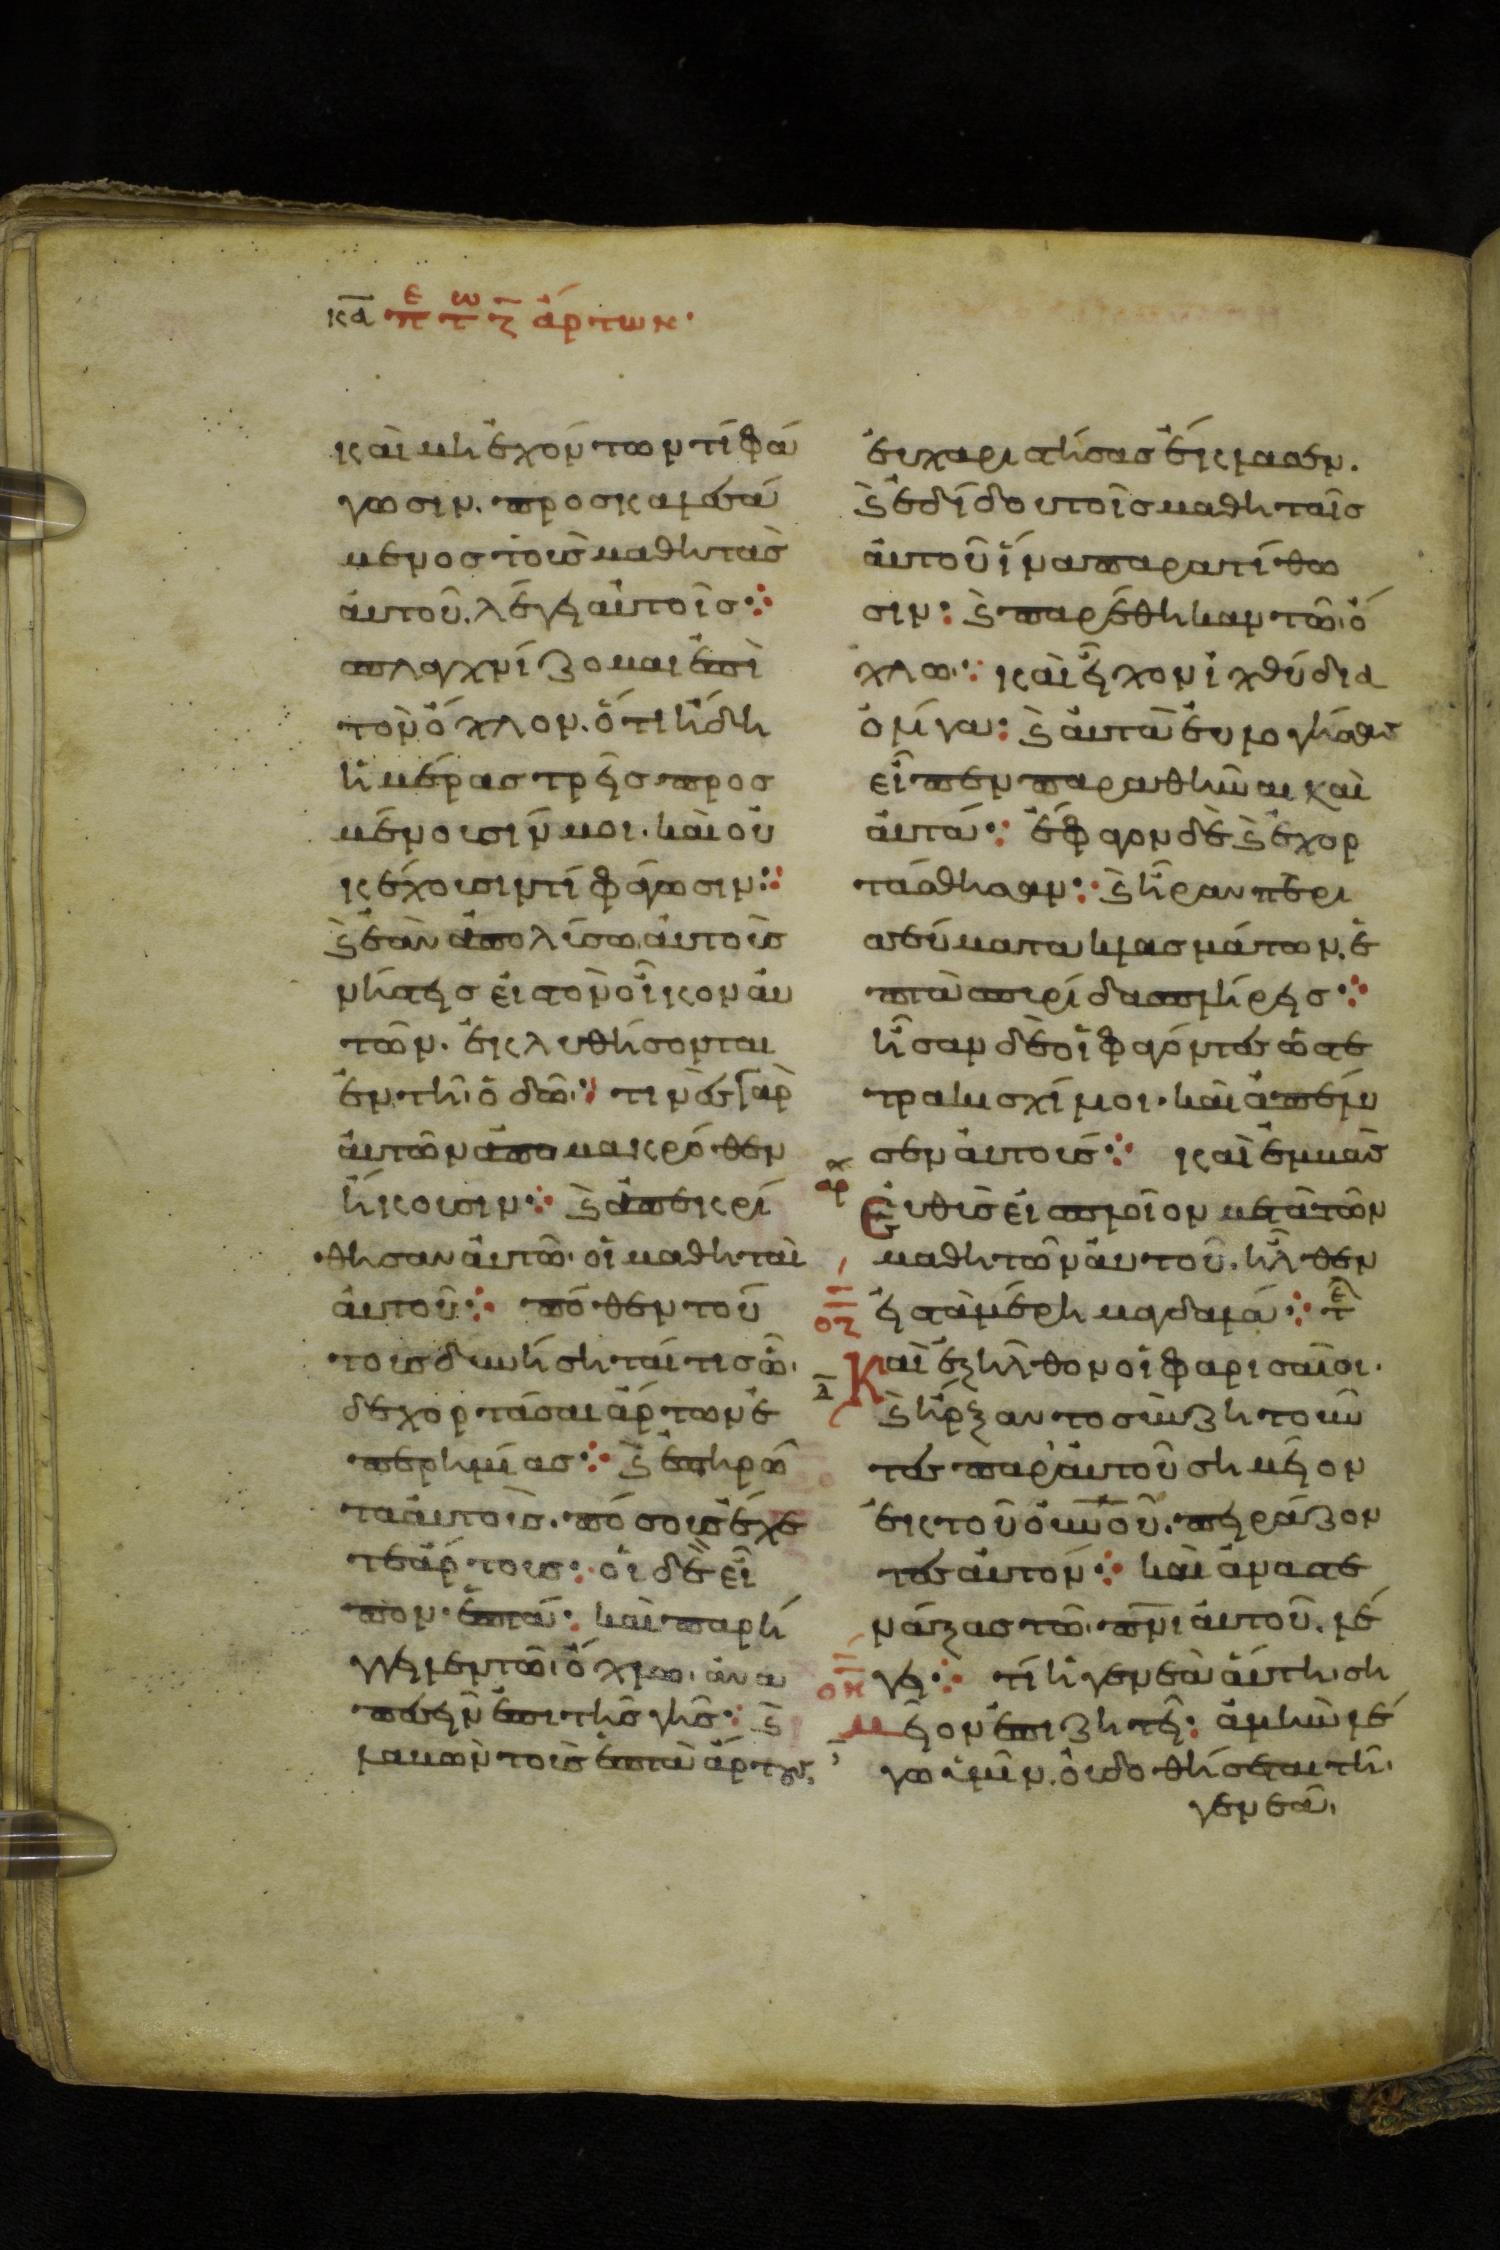 κα πε τω ζ ἄρτων·
καὶ μὴ ἐχόντων τί φά
γωσιν. προσκαλεσά
μενος τοὺς μαθητὰς
ἀυτοῦ. λέγει αὐτοῖς·
σπλαγχνίζομαι ἐπὶ
τὸν ὄχλον. ὅτι ἤδη
ἡμέρας τρεῖς προσ
μένουσίν μοι. καὶ οὐ
κ ἔχουσιν τί φάγωσιν·
ϗ ἐὰν ἀπολύσω ἀυτοὺς
νήστεις εἰς τὸν οἶκον ἀυ
τῶν. ἐκλυθήσονται
ἐν τῆ ὁδῶ· τινὲς γὰρ
ἀυτῶν ἀπο μακρόθεν
ἥκουσιν· ϗ ἀπεκρί
θησαν ἀυτῶ οἱ μαθηταὶ
ἀυτοῦ· πόθεν τού
τους δυνήσηταί τις ὧ
δε χορτάσαι ἄρτων ἐ
π ερημίας· ϗ ἐπηρώ
τα ἀυτούς. πόσους ἔχε
τε ἄρτους· οἱ δὲ εἶ
πον ἑπτά· καὶ παρή
γγειλεν τῶ ὄχλω ἀνα
πεσεῖν ἐπι τῆς γῆς· ϗ
λαβὼν τοὺς ἑπτὰ ἄρτους,
ἐυχαριστήσας ἔκλασεν.
ϗ ἐδίδου τοῖς μαθηταῖς
ἀυτοῦ ἵνα παρατίθω
σιν· ϗ παρέθηκαν τῶ ὄ
χλω· καὶ εἶχον ἰχθύδια
ὀλίγα· ϗ ἀυτὰ ἐυλογήσας
εἶπεν παρατθῆναι καὶ
ἀυτά· ἔφαγον δὲ ϗ ἐχορ
τάσθησαν· ϗ ἦραν περι
σσεύματα κλασμάτων. ἑ
πτὰ σπυρίδας πλήρεις·
ἦσαν δὲ οἱ φαγόντες ὡσε
τρακισχίλιοι. καὶ ἀπέλυ
σεν ἀυτούς· καὶ ἐμβὰς
αρχ
Ευθὺς εἰς πλοῖον μετὰ τῶν
μαθητῶν ἀυτοῦ. ἦλθεν
οζ
εἰς τὰ μέρη μαγδαλά· τε
Καὶ ἐξῆλθον οἱ φαρισαῖοι.
δ
ϗ ἤρξαντο συνζητοῦν
τες παρ' ἀυτοῦ σημεῖον
ἐκ τοῦ ουνου. πειράζον
τες ἀυτόν· καὶ ἀναστε
νάξας τῶ πνι ἀυτοῦ. λέ
γει· τί ἡ γενεὰ ἅυτη ση
οη
μεῖον ἐπιζητεῖ· ἀμὴν λέ
γω ὑμῖν. οὐ δοθήσεται τῆ
γενεᾶ.